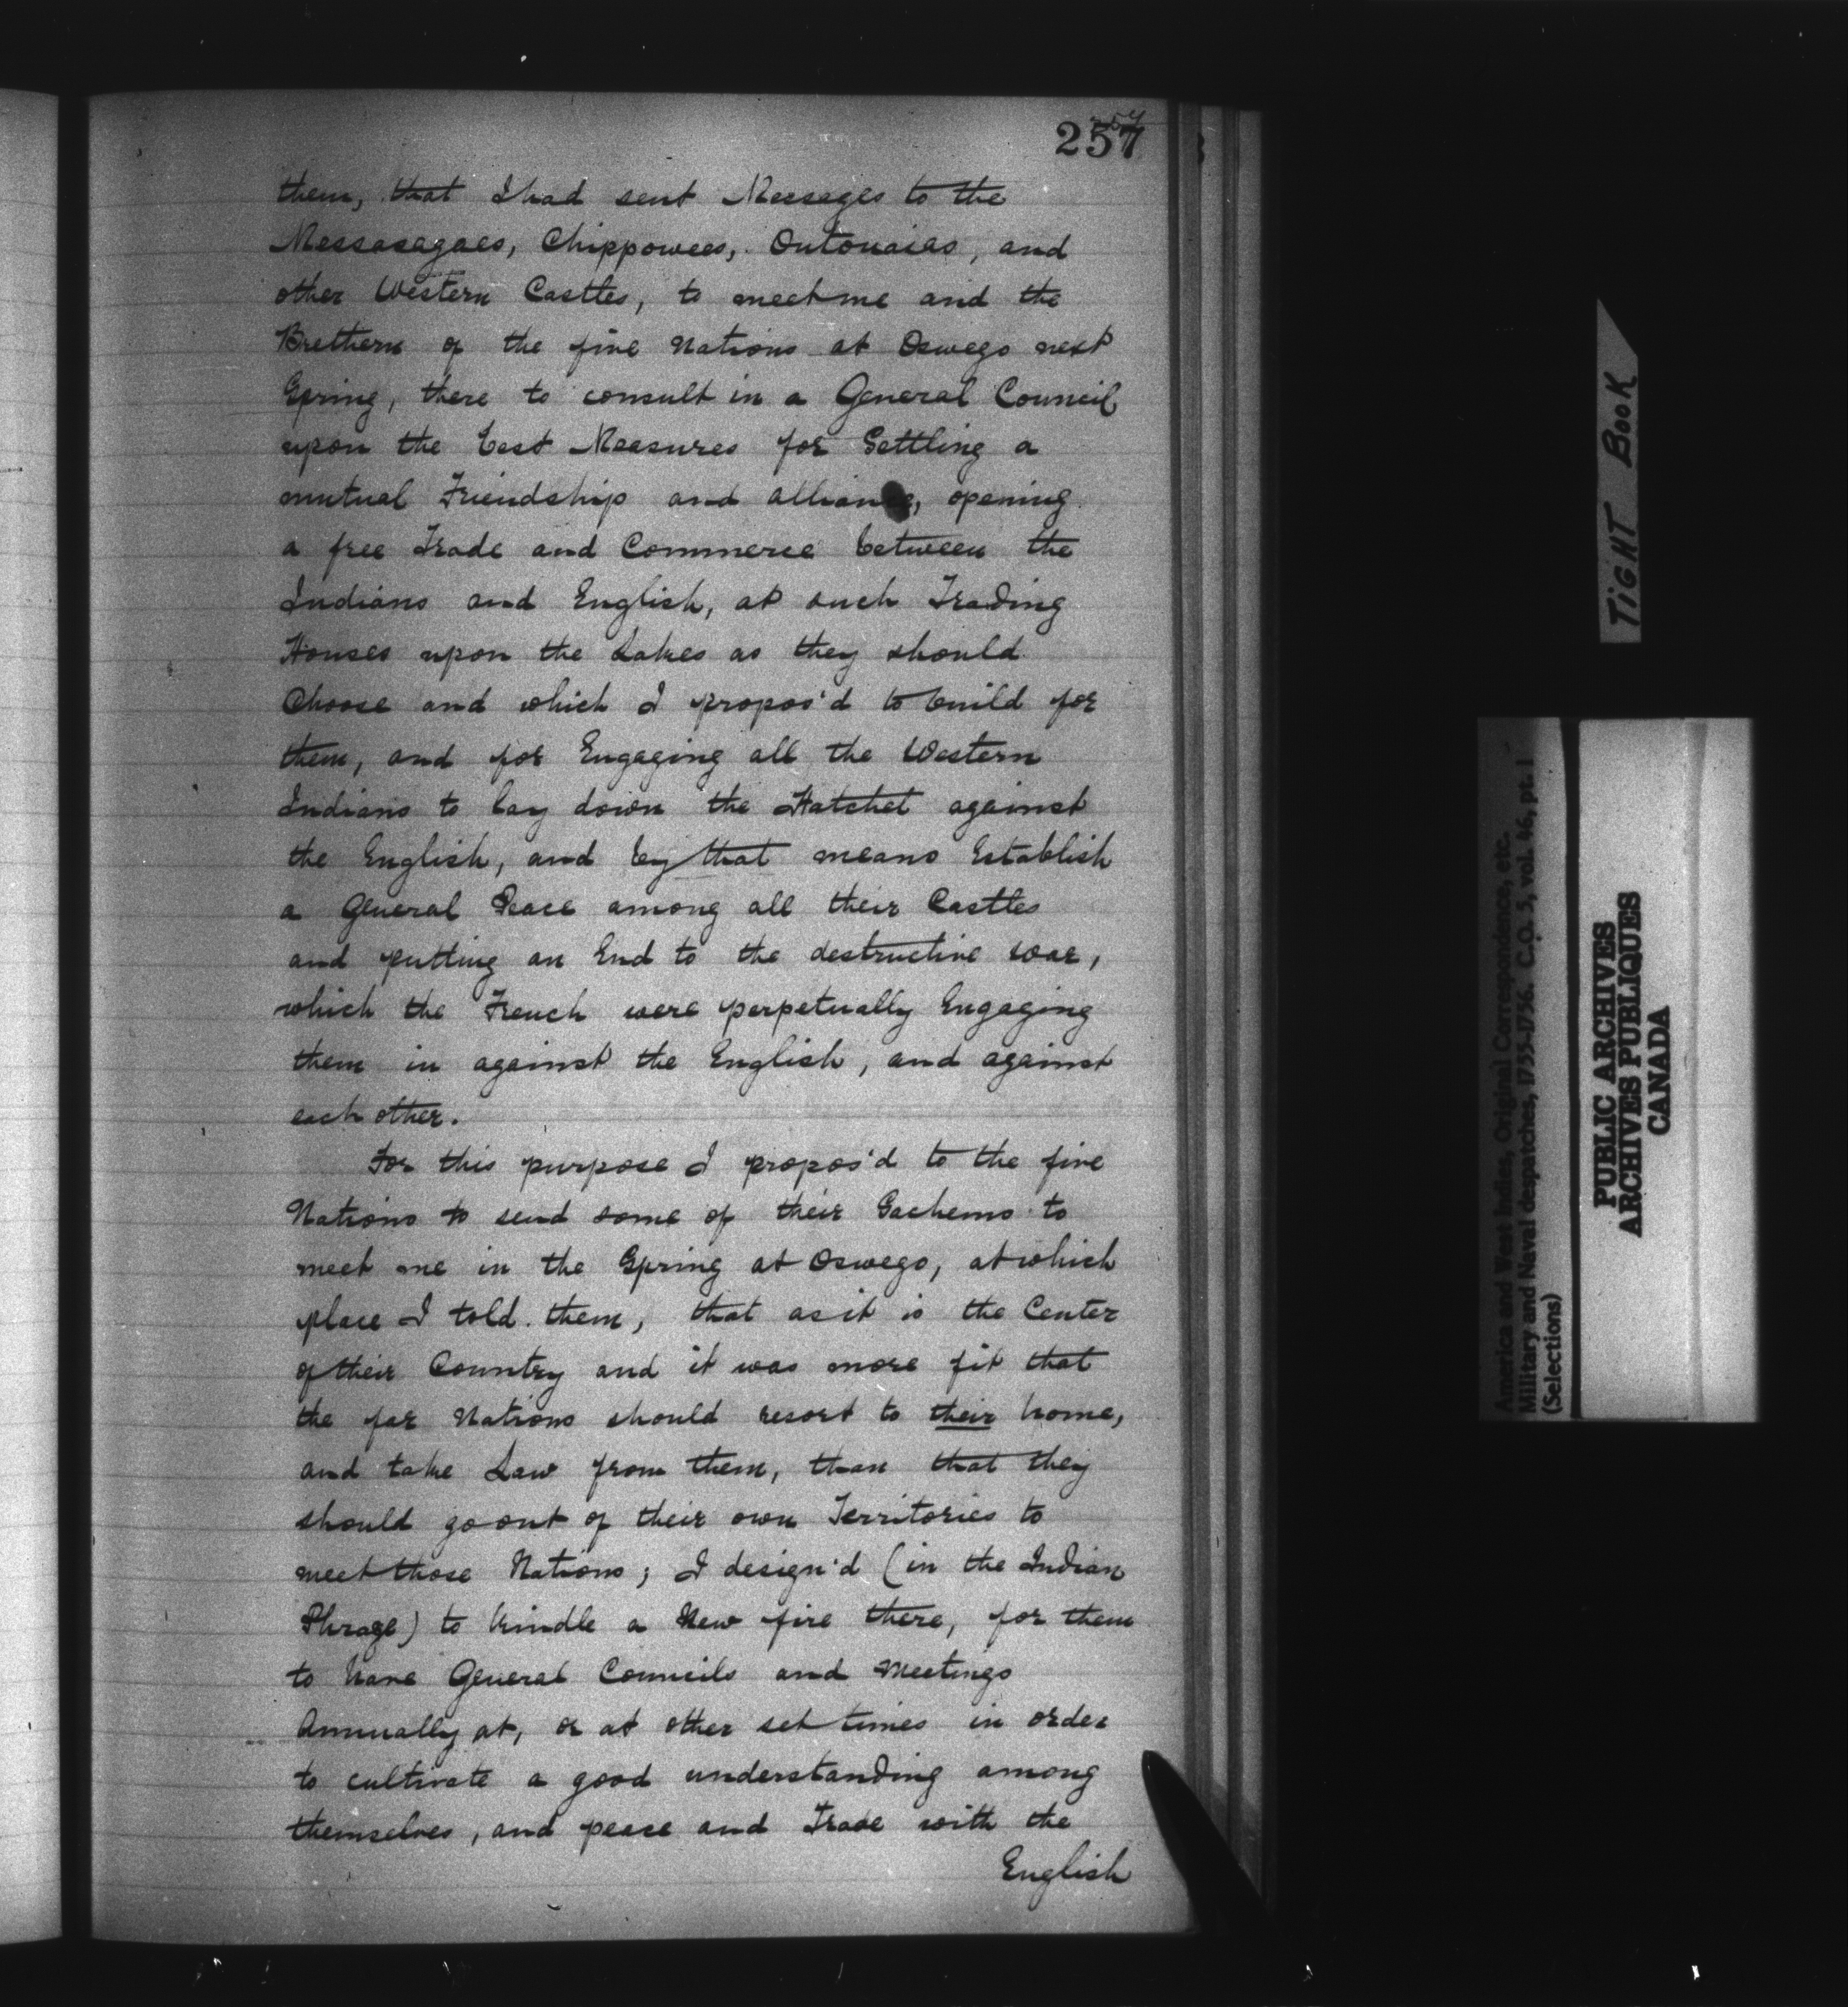 257
them, that I had sent Messages to the
Messasagaes, Chippowees, Outouaias, and
other Western Castles, to meet me and the
Brethern of the five Nations at Oswego next
Spring, there to consult in a General Council
upon the best Measures for Settling a
mutual Friendship and alliance, opening
a free Trade and Commerce between the
Indians and English, at such Trading
Houses upon the Lakes as they should
Choose and which I propos'd to build for
them, and for Engaging all the Western
Indians to lay down the Hatchet against
the English, and by that means Establish
a General Peace among all their Castles
and putting an End to the destructive war,
which the French were perpetually Engaging
them in against the English, and against
each other.
For this purpose I propos'd to the five
Nations to send some of their Sachems to
meet me in the Spring at Oswego, at which
place I told them, that as it is the Center
of their Country and it was more fit that
the far Nations should resort to their home,
and take Law from them, than that they
should go out of their own Territories to
meet those Nations; I design'd (in the Indian
Phrage) to kindle a New fire there, for them
to have General Councils and Meetings
Annually at, or at other set times in order
to cultivate a good understanding among
themselves, and peace and Trade with the
English
TIGHT BOOK
America and West Indies, Original Correspondence, etc.
Military and Naval despatches, 1755-1756. C.O. 5, vol. 46, pt. 1
(Selections)
PUBLIC ARCHIVES
ARCHIVES PUBLIQUES
CANADA